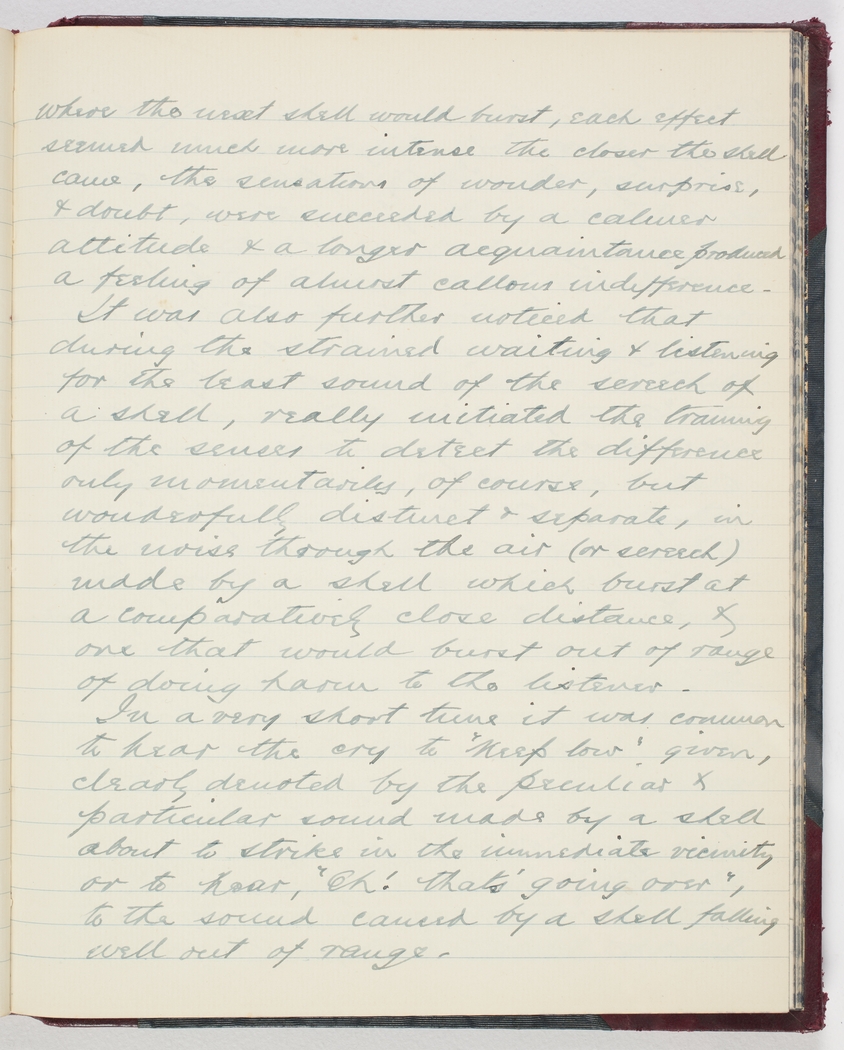 where the next shell would burst, each effect
seemed much more intense the closer the shell
came, the sensations of wonder, surprise,
& doubt, were succeeded by a calmer
attitude & a longer acquaintance produced
a feeling of almost callous indifference -
It was also further noticed that
during the strained waiting & listening
for the least sound of the screech of
a shell, really initiated the training
of the senses to detect the difference
only momentarily, of course, but
wonderfully distinct & separate, in
the noise through the air (or screech)
made by a shell which burst at
a comparatively close distance, &
one that would burst out of range
of doing harm to the listener.
In a very short time it was common
to hear the cry to "Keep low" given,
clearly denoted by the peculiar &
particular sound made by a shell
about to strike in the immediate vicinity
or to hear, "Oh! that's going over",
to the sound caused by a shell falling
well out of range.